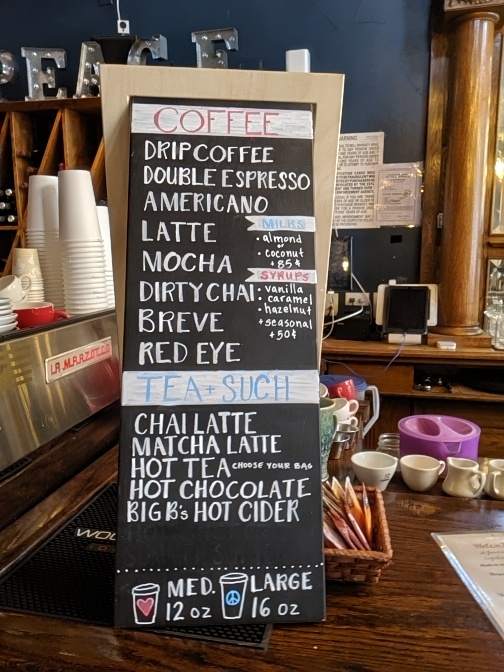 PEACE
COFFEE
DRIP COFFEE
DOUBLE ESPRESSO
AMERICANO
LATTE
MOCHA
DIRTY CHAI
BREVE
RED EYE
MILKS
• almond
or
• coconut
+ 85¢
SYRUPS
• vanilla
• caramel
• hazelnut
+seasonal
+50¢
TEA + SUCH
CHAI LATTE
MATCHA LATTE
HOT TEA CHOOSE YOUR BAG
HOT CHOCOLATE
BIG B's HOT CIDER
MED. LARGE
12 oz 16 oz
LA MARZOCCO
WARNING